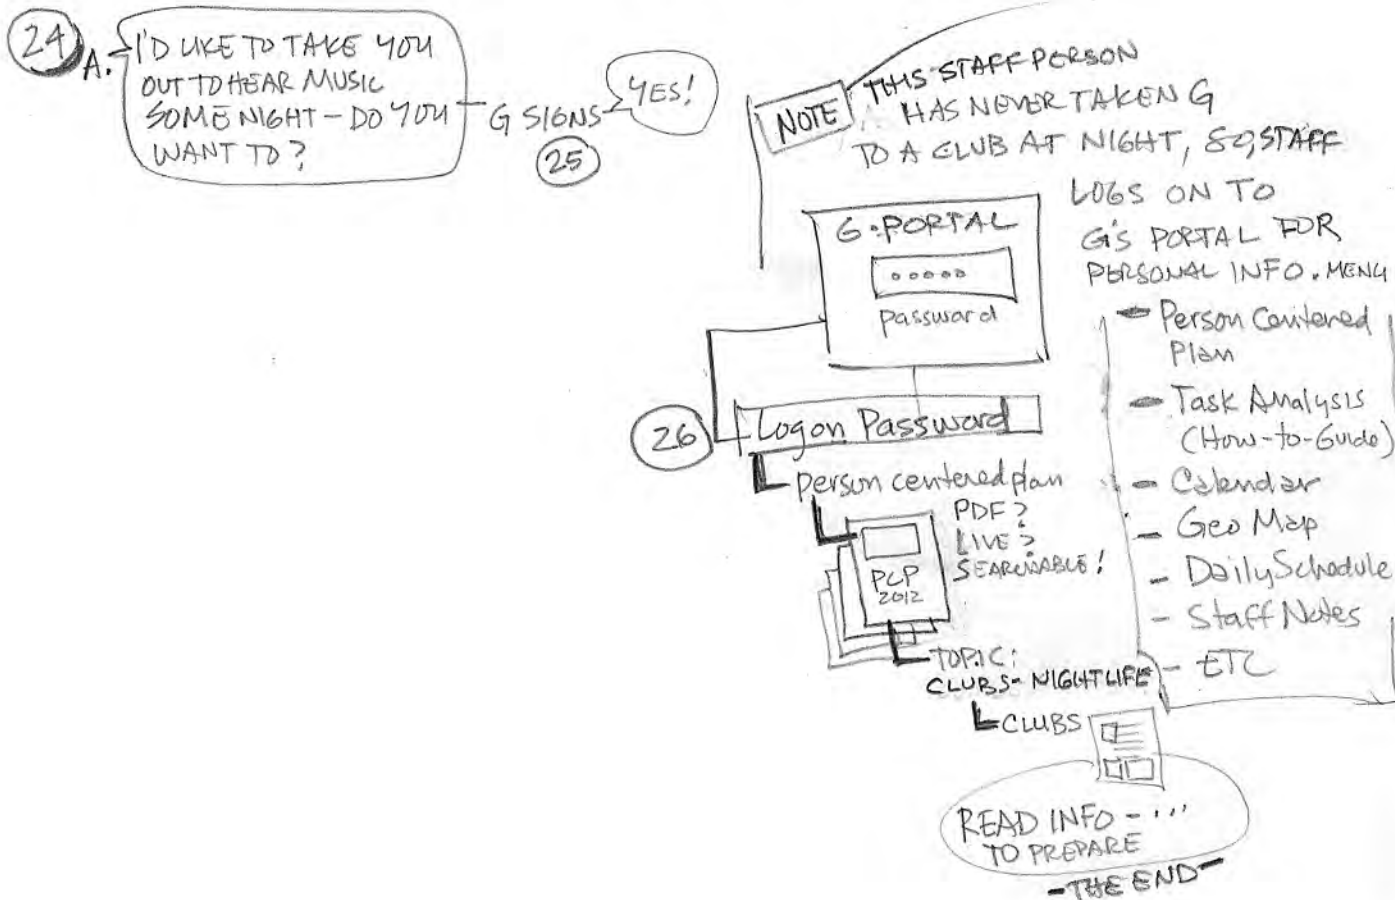 24
A. I'D LIKE TO TAKE YOU
OUT TO HEAR MUSIC
SOME NIGHT - DO YOU
WANT TO?
G SIGNS
YES!
25
NOTE
THIS STAFF PERSON
HAS NEVER TAKEN G
TO A CLUB AT NIGHT, SO, STAFF
LOGS ON TO
G'S PORTAL FOR
PERSONAL INFO. MENU
G•PORTAL
password
26
Logon Password
person centered plan
PDF?
LIVE?
SEARCHABLE!
PCP
2012
TOPIC:
CLUBS - NIGHTLIFE
CLUBS
READ INFO - ...
TO PREPARE
- THE END -
- Person Centered
Plan
- Task Analysis
(How-to-Guide)
- Calendar
- Geo Map
- Daily Schedule
- Staff Notes
- ETC